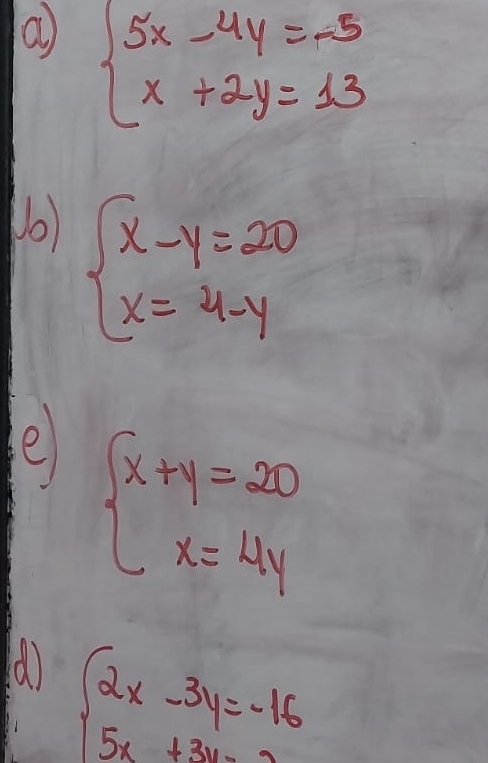 a) 5x - 4y = -5
x + 2y = 13
b) x - y = 20
x = 4 - y
c) x + y = 20
x = 4y
d) 2x - 3y = -16
5x + 3y =